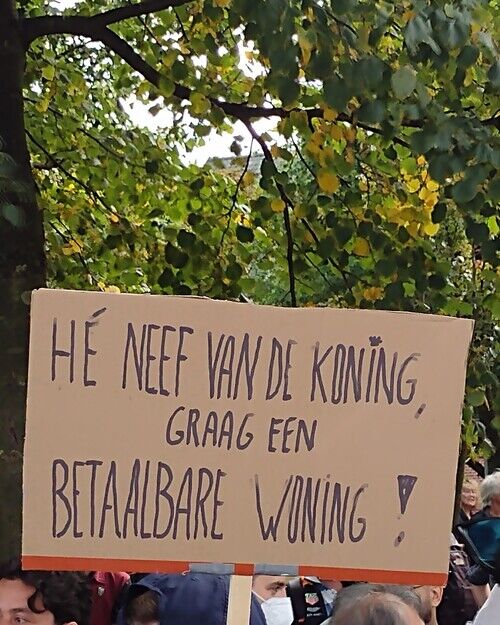 HÉ NEEF VAN DE KONING,
GRAAG EEN
BETAALBARE WONING!